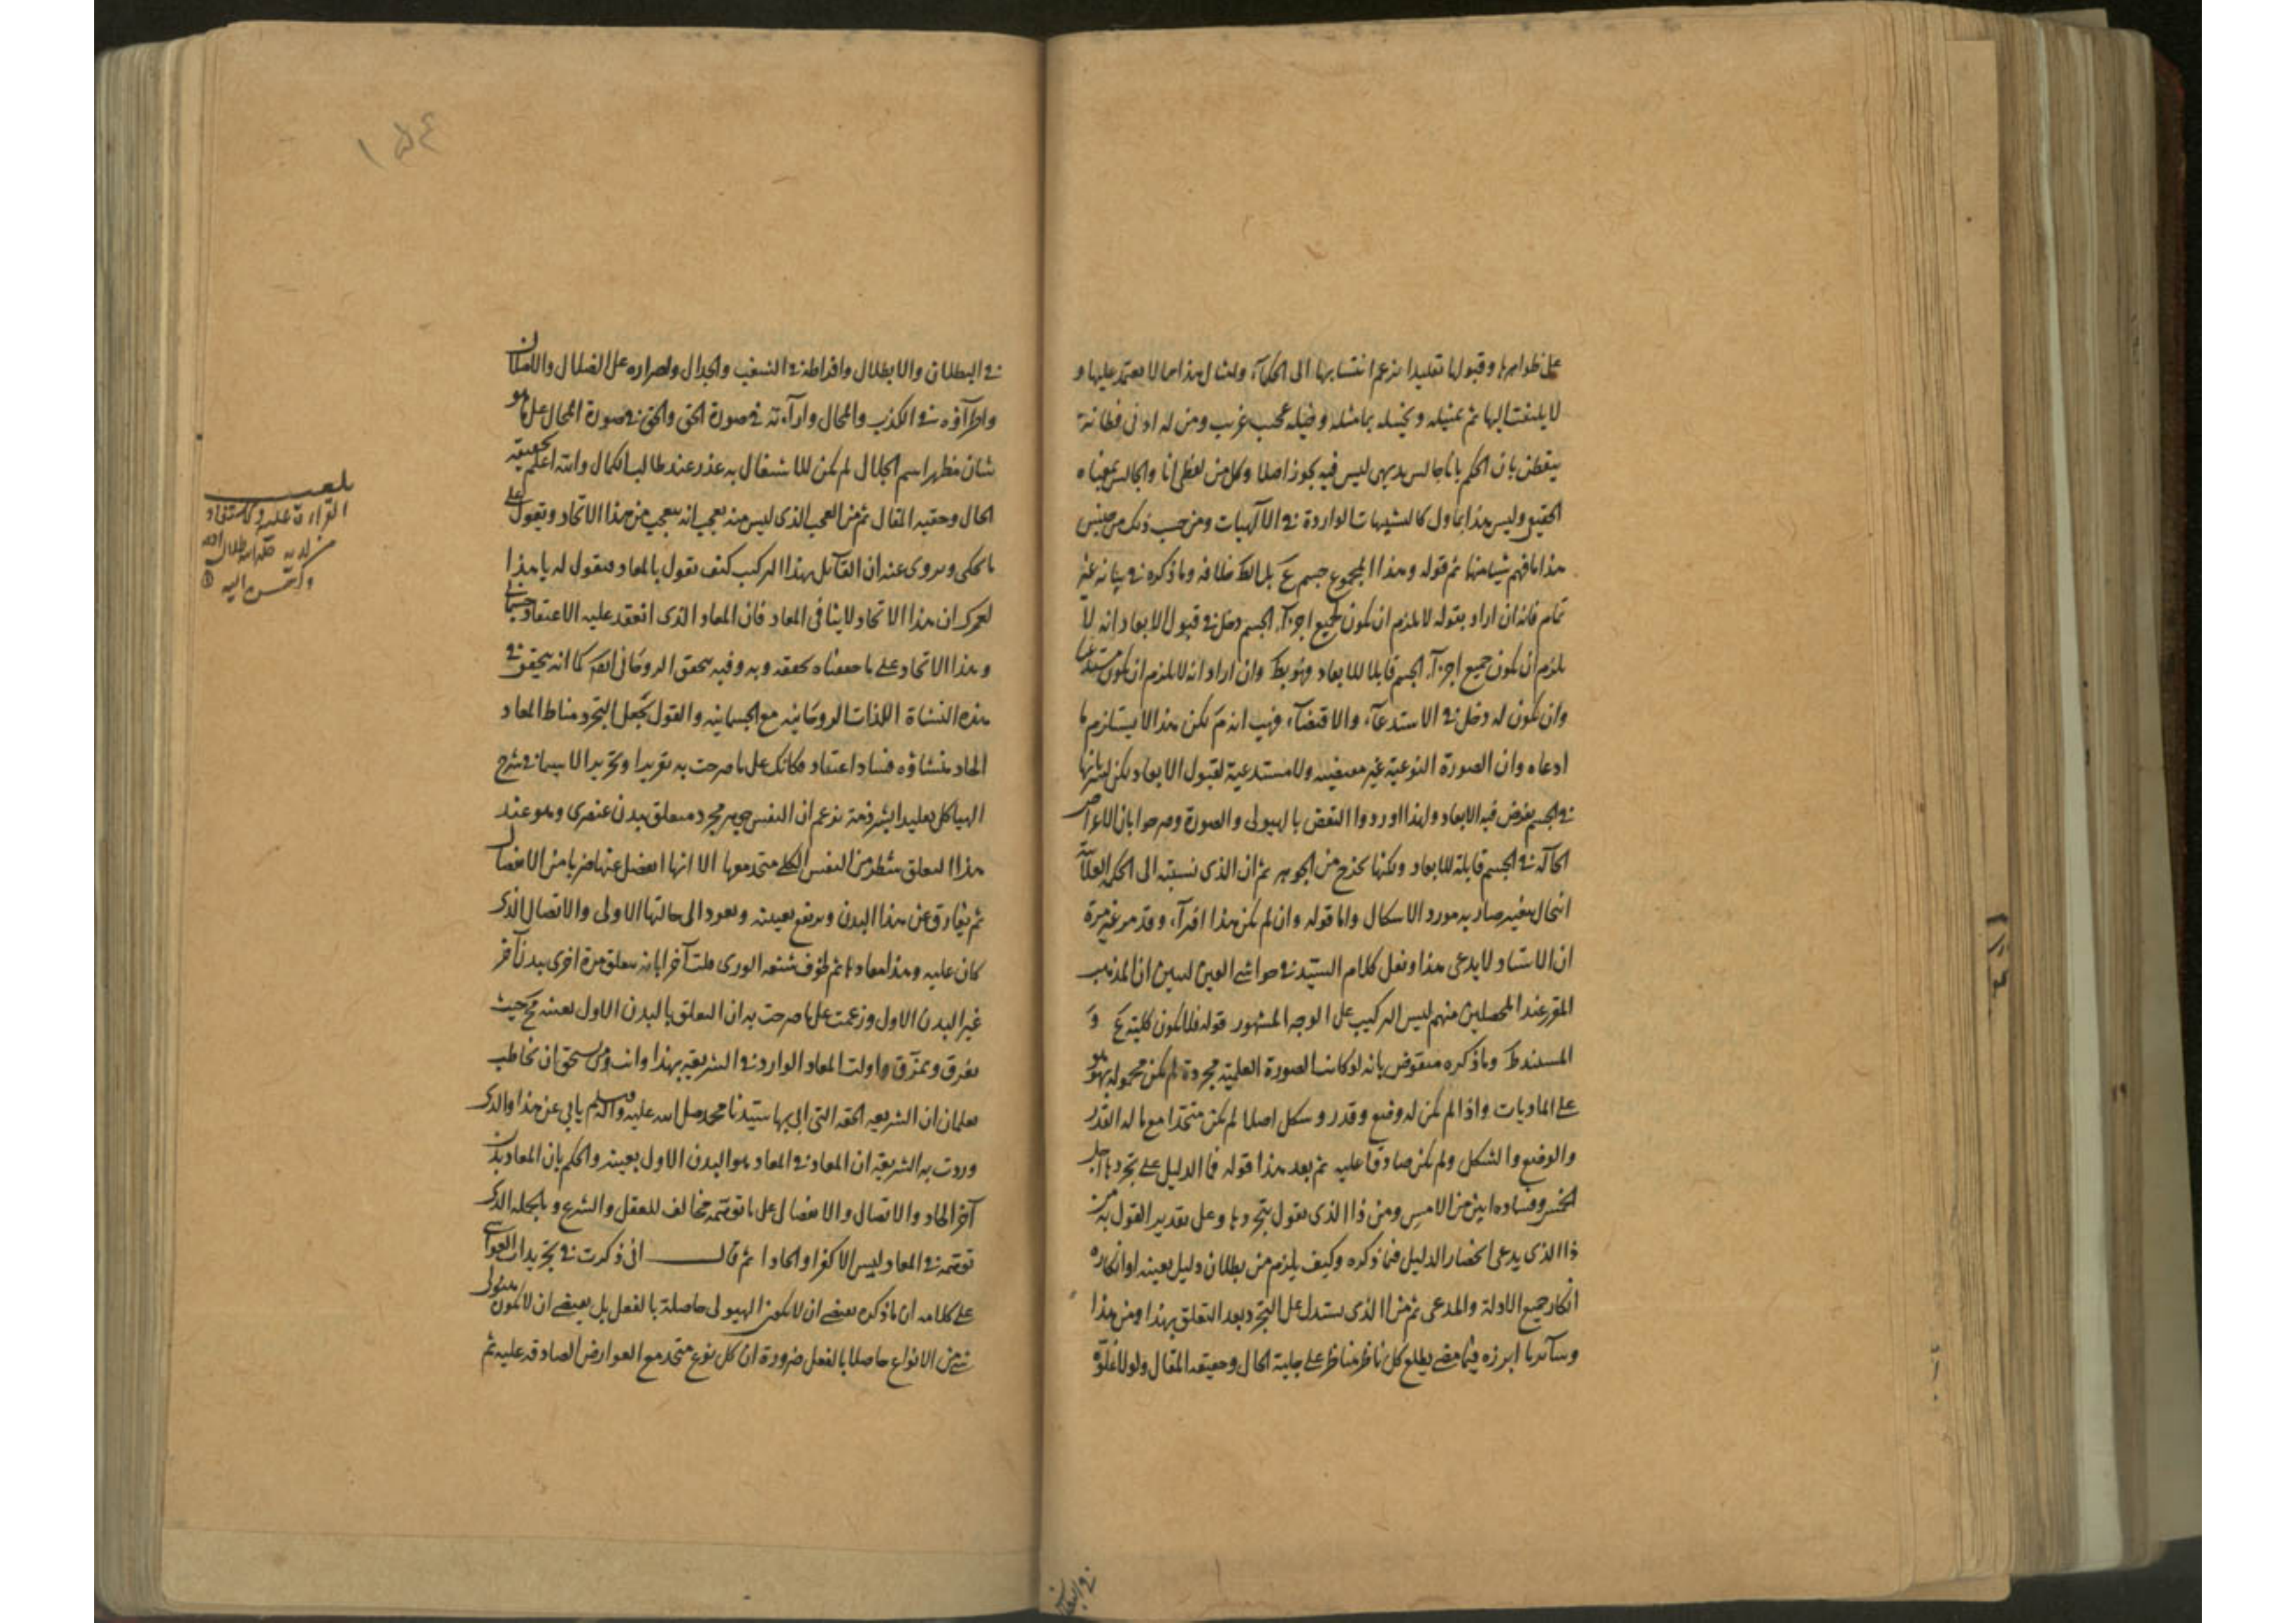 على ظواهرها وقبولها تقليدا بزعم انتسابها الى الحكمآء وامثال هذا مما لا يعتمد عليها و
لا يلتفت اليها ثم تمثيله وتخييله بما مثله وخيله عجيب غريب ومن له ادنى فطانة
يتفطن بان الحكم بانا جالس بديهى ليس فيه تجوز اصلا وكل من لفظى انا والجالس بمعناه
الحقيقى وليس هذا بماول كالتشبيهات الواردة فى الآلهيات ومن حسب ذلك من جنس
هذا ما فهم شيئا منها ثم قوله وهذا المجموع جسم ع بل الظ خلافه وما ذكره فى بيانه غير
تمام فانه ان اراد بقوله لا يلزم ان يكون لجميع اجزآء الجسم دخل فى قبول الابعاد انه لا
يلزم ان يكون جميع اجزآء الجسم قابلا للابعاد فهو بط وان اراد انه لا يلزم ان يكون مستدعيا
وان يكون له دخل فى الاستدعآء والاقتضآء فهب انه م لكن هذا لا يستلزم ما
ادعاه وان الصورة النوعية غير مقتضية ولا مستدعية لقبول الابعاد لكن
فى الجسم يفرض فيه الابعاد ولهذا اوردوا النقض بالهيولى والصورة وصرحوا بان الاعراض
الحالة فى الجسم قابلة للابعاد ولكنها تخرج من الجوهر ثم ان الذى نسبته الى الحكيم العلامة
انتحال بتغيير صار به مورد الاشكال واما قوله وان لم يكن هذا افترآء وقد مر غير مرة
ان الاستاد لا يدعى هذا ونقل كلام السيد فى حواشى العين ليبين ان المذهب
المقرر عند المحصلين منهم ليس التركيب على الوجه المشهور قوله فلا يكون كلية ع و
المستند ظ وما ذكره منقوض بانه لو كانت الصورة العلمية مجردة لم يكن محموله بهو هو
على الماديات واذا لم يكن له وضع وقدر وشكل اصلا لم يكن متحدا مع ماله القدر
والوضع والشكل ولم يكن صادقا عليه ثم بعد هذا قوله فما الدليل على تجردها اجل
الخسر وفساده ابين من الامس ومن ذا الذى يقول بتجردها وعلى تقدير القول به من
ذا الذى يدعى انحصار الدليل فيما ذكره وكيف يلزم من بطلان دليل بعينه او انكاره
انكار جميع الادلة والمدعى ثم من ذا الذى يستدل على التجرد بعد التعلق بهذا ومن هذا
وسآئر ما ابرزه فيما مضى يطلع كل ناظر مناظر على جلية الحال وحقيقه المقال ولولا غلوه
فى البطلان والابطال وافراطه فى الشغب والجدال واصراره على الضلال والاضلال
واطرآؤه فى الكذب والمحال وارآءته فى صورة الحق والحق فى صورة المحال على ما هو
شان مظهر اسم الجلال لم يكن للاشتغال به عذر عند طالب الكمال والله اعلم بحقيقة
الحال وحقيه المقال ثم من العجب الذى ليس منه بعجب انه يتعجب من هذا الاتحاد ويقول على
ما حكى ويروى عنه ان القآئل بهذا التركيب كيف يقول بالمعاد فنقول له يا هذا
لعمرك ان هذا الاتحاد لا ينافى المعاد فان المعاد الذى انعقد عليه الاعتقاد جسمانى
وهذا الاتحاد على ما حققناه يحققه وبه وفيه يتحقق الروحانى ايضا كما انه يتحقق فى
هذه النشاة اللذات الروحانية مع الجسمانية والقول بجعل التجرد مناط المعاد
الحاد منشاؤه فساد اعتقاد فكانك على ما صرحت به تقريرا وتحريرا لا سيما فى شرح
الهياكل تقليدا لشرذمة تزعم ان النفس جوهر مجرد متعلق ببدن عنصرى وهو عند
هذا التعلق شطر من النفس الكلى متحد معها الا انها انفصل عنها ضربا من الانفصال
ثم يفارق عن هذا البدن ويرتفع تعينه ويعود الى حالتها الاولى والاتصال الذى
كان عليه وهذا معادها ثم لخوف شنعه الورى ملت آخرا بانه يتعلق مرة اخرى ببدن آخر
غير البدن الاول وزعمت على ما صرحت به ان التعلق بالبدن الاول بعينه مح حيث
تفرق وتمزق واولت المعاد الوارد فى الشريعة بهذا وانت ومن يستحق ان يخاطب
تعلمان ان الشريعه الحقه التى اتى بها سيدنا محمد صلى الله عليه وآله وسلم يابى عن هذا والذى
وردت به الشريعة ان المعاد فى المعاد هو البدن الاول بعينه والحكم بان المعاد بدن
آخر الحاد والاتصال والانفصال على ما توهمته مخالف للعقل والشرع وبالجمله الذى
توهمته فى المعاد ليس الا كفرا والحادا ثم قال انى ذكرت فى تجريد الغواشى
على كلامه ان ما ذكره يقتضى ان لا يكون الهيولى حاصلة بالفعل بل يقتضى ان لا يكون هيولى
شئ من الانواع حاصلا بالفعل ضرورة ان كل نوع متحد مع العوارض الصادقه عليه ثم
١٥٤